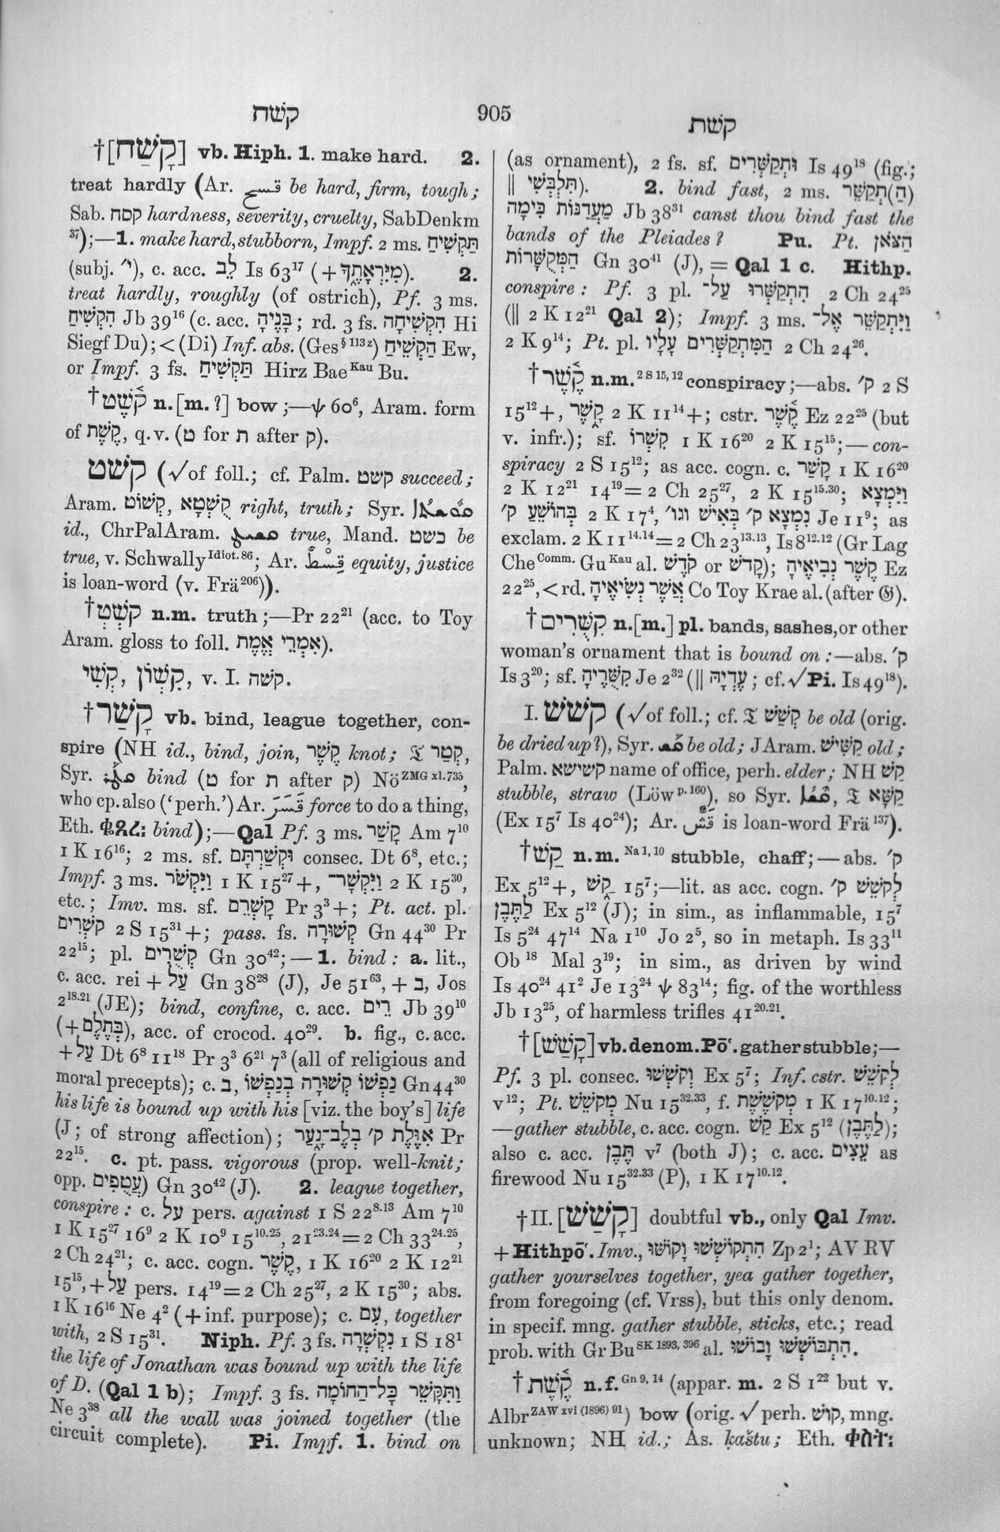 קשח
905
קשת
†[קָשַׁח] vb. Hiph. 1. make hard. 2.
treat hardly (Ar. قسح be hard, firm, tough;
Sab. קסח hardness, severity, cruelty, SabDenkm
37);—1. make hard, stubborn, Impf. 2 ms. תַּקְשִׁיחַ
(subj. י״), c. acc. לֵב Is 63¹⁷ (+מִיִּרְאָתֶךָ). 2.
treat hardly, roughly (of ostrich), Pf. 3 ms.
הִקְשִׁיחַ Jb 39¹⁶ (c. acc. בָּנֶיהָ; rd. 3 fs. הִקְשִׁיחָה Hi
Siegf Du); < (Di) Inf. abs. (Ges§113z) הַקְשִׁיחַ Ew,
or Impf. 3 fs. תַּקְשִׁיחַ Hirz Bae Kau Bu.
†קֹשֶׁט n.[m.?] bow;—ψ 60⁶, Aram. form
of קֶשֶׁת, q.v. (ט for ת after ק).
קשט (√of foll.; cf. Palm. קשט succeed;
Aram. קְשׁוֹט, קֻשְׁטָא right, truth; Syr. ܩܘܫܬܐ
id., ChrPalAram. true, Mand. כשט be
true, v. Schwally Idiot. 86; Ar. قِسْطٌ equity, justice
is loan-word (v. Frä²⁰⁶)).
†קֹשְׁטְ n.m. truth;—Pr 22²¹ (acc. to Toy
Aram. gloss to foll. אִמְרֵי אֱמֶת).
קְשִׁי, קִשְׁיוֹן, v. I. קשה.
†קָשַׁר vb. bind, league together, con-
spire (NH id., bind, join, קֶשֶׁר knot; 𝔗 קְטַר,
Syr. ܩܛܪ bind (ט for ת after ק) Nö ZMG xl. 735,
who cp. also ('perh.') Ar. قَسَرَ force to do a thing,
Eth. ቈጸረ: bind);—Qal Pf. 3 ms. קָשַׁר Am 7¹⁰
1 K 16¹⁶; 2 ms. sf. וּקְשַׁרְתָּם consec. Dt 6⁸, etc.;
Impf. 3 ms. וַיִּקְשֹׁר 1 K 15²⁷+, וַיִּקְשָׁר־ 2 K 15³⁰,
etc.; Imv. ms. sf. קָשְׁרֵם Pr 3³+; Pt. act. pl.
קֹשְׁרִים 2 S 15³¹+; pass. fs. קְשׁוּרָה Gn 44³⁰ Pr
22¹⁵; pl. קְשֻׁרִים Gn 30⁴²;—1. bind: a. lit.,
c. acc. rei + עַל Gn 38²⁸ (J), Je 51⁶³, + ב, Jos
2¹⁸·²¹ (JE); bind, confine, c. acc. רֵים Jb 39¹⁰
(+בְּתֶלֶם), acc. of crocod. 40²⁹. b. fig., c. acc.
+עַל Dt 6⁸ 11¹⁸ Pr 3³ 6²¹ 7³ (all of religious and
moral precepts); c. ב, נַפְשׁוֹ קְשׁוּרָה בְנַפְשׁוֹ Gn 44³⁰
his life is bound up with his [viz. the boy's] life
(J; of strong affection); אִוֶּלֶת ק׳ בְלֶב־נָעַר Pr
22¹⁵. c. pt. pass. vigorous (prop. well-knit;
opp. עֲטֻפִים) Gn 30⁴² (J). 2. league together,
conspire: c. עַל pers. against 1 S 22⁸·¹³ Am 7¹⁰
1 K 15²⁷ 16⁹ 2 K 10⁹ 15¹⁰·²⁵, 21²³·²⁴=2 Ch 33²⁴·²⁵,
2 Ch 24²¹; c. acc. cogn. קֶשֶׁר, 1 K 16²⁰ 2 K 12²¹
15¹⁵, + עַל pers. 14¹⁹=2 Ch 25²⁷, 2 K 15³⁰; abs.
1 K 16¹⁶ Ne 4² (+inf. purpose); c. עִם, together
with, 2 S 15³¹. Niph. Pf. 3 fs. נִקְשְׁרָה 1 S 18¹
the life of Jonathan was bound up with the life
of D. (Qal 1 b); Impf. 3 fs. וַתִּקָּשֵׁר כָּל־הַחוֹמָה
Ne 3³⁸ all the wall was joined together (the
circuit complete). Pi. Impf. 1. bind on
(as ornament), 2 fs. sf. וּתְקַשְּׁרִים Is 49¹⁸ (fig.;
|| תִּלְבָּשִׁי). 2. bind fast, 2 ms. (הַ)תְקַשֵּׁר
מַעֲדַנּוֹת כִּימָה Jb 38³¹ canst thou bind fast the
bands of the Pleiades? Pu. Pt. הַצֹּאן
הַמְקֻשָּׁרוֹת Gn 30⁴¹ (J), = Qal 1 c. Hithp.
conspire: Pf. 3 pl. הִתְקַשְּׁרוּ עַל־ 2 Ch 24²⁵
(|| 2 K 12²¹ Qal 2); Impf. 3 ms. וַיִּתְקַשֵּׁר אֶל־
2 K 9¹⁴; Pt. pl. הַמִּתְקַשְּׁרִים עָלָיו 2 Ch 24²⁶.
†קֶשֶׁר n.m. 2 S 15, 12 conspiracy;—abs. ק׳ 2 S
15¹²+, קָשֶׁר 2 K 11¹⁴+; cstr. קֶשֶׁר Ez 22²⁵ (but
v. infr.); sf. קִשְׁרוֹ 1 K 16²⁰ 2 K 15¹⁵;—con-
spiracy 2 S 15¹²; as acc. cogn. c. קָשַׁר 1 K 16²⁰
2 K 12²¹ 14¹⁹=2 Ch 25²⁷, 2 K 15¹⁵·³⁰; וַיִּמְצָא
בְּהוֹשֵׁעַ ק׳ 2 K 17⁴, נִמְצָא ק׳ בְּאִישׁ וגו׳ Je 11⁹; as
exclam. 2 K 11¹⁴·¹⁴=2 Ch 23¹³·¹³, Is 8¹²·¹² (Gr Lag
Che Comm. Gu Kau al. קֹדֶשׁ or קָדֹשׁ); קֶשֶׁר נְבִיאֶיהָ Ez
22²⁵, < rd. אֲשֶׁר נְשִׂיאֶיהָ Co Toy Krae al. (after 𝔊).
†קִשֻּׁרִים n.[m.] pl. bands, sashes, or other
woman's ornament that is bound on:—abs. ק׳
Is 3²⁰; sf. קִשֻּׁרֶיהָ Je 2³² (|| עֶדְיָהּ; cf. √Pi. Is 49¹⁸).
I. קשש (√of foll.; cf. 𝔗 קְשַׁשׁ be old (orig.
be dried up?), Syr. ܩܫ be old; JAram. קַשִּׁישׁ old;
Palm. קשישא name of office, perh. elder; NH קַשׁ
stubble, straw (Löw p. 160), so Syr. ܩܫܐ, 𝔗 קַשָּׁא
(Ex 15⁷ Is 40²⁴); Ar. قَشٌّ is loan-word Frä¹³⁷).
†קַשׁ n.m. Na 1, 10 stubble, chaff;—abs. ק׳
Ex 5¹²+, קַשׁ 15⁷;—lit. as acc. cogn. לְקֹשֵׁשׁ ק׳
לַתֶּבֶן Ex 5¹² (J); in sim., as inflammable, 15⁷
Is 5²⁴ 47¹⁴ Na 1¹⁰ Jo 2⁵, so in metaph. Is 33¹¹
Ob ¹⁸ Mal 3¹⁹; in sim., as driven by wind
Is 40²⁴ 41² Je 13²⁴ ψ 83¹⁴; fig. of the worthless
Jb 13²⁵, of harmless trifles 41²⁰·²¹.
†[קָשַׁשׁ] vb. denom. Pō‘. gather stubble;—
Pf. 3 pl. consec. וְקֹשְׁשׁוּ Ex 5⁷; Inf. cstr. לְקֹשֵׁשׁ
v¹²; Pt. מְקֹשֵׁשׁ Nu 15³²·³³, f. מְקֹשֶׁשֶׁת 1 K 17¹⁰·¹²;
—gather stubble, c. acc. cogn. קַשׁ Ex 5¹² (לַתֶּבֶן);
also c. acc. תֶּבֶן v⁷ (both J); c. acc. עֵצִים as
firewood Nu 15³²·³³ (P), 1 K 17¹⁰·¹².
†II. [קָשַׁשׁ] doubtful vb., only Qal Imv.
+ Hithpō‘. Imv., הִתְקוֹשְׁשׁוּ וָקוֹשּׁוּ Zp 2¹; AV RV
gather yourselves together, yea gather together,
from foregoing (cf. Vrss), but this only denom.
in specif. mng. gather stubble, sticks, etc.; read
prob. with Gr Bu SK 1893, 396 al. הִתְבּוֹשְׁשׁוּ וָבוֹשׁוּ.
†קֶשֶׁת n.f. Gn 9, 14 (appar. m. 2 S 1²² but v.
Albr ZAW xvi (1896) 91) bow (orig. √ perh. קושׁ, mng.
unknown; NH id.; As. ḳaštu; Eth. ቀስት: